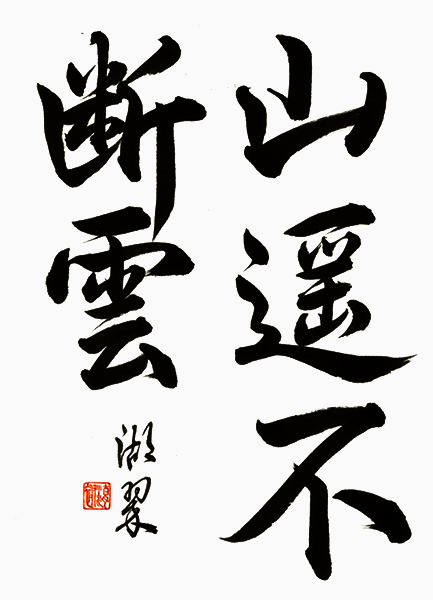 山遥不
断雲
湖翠